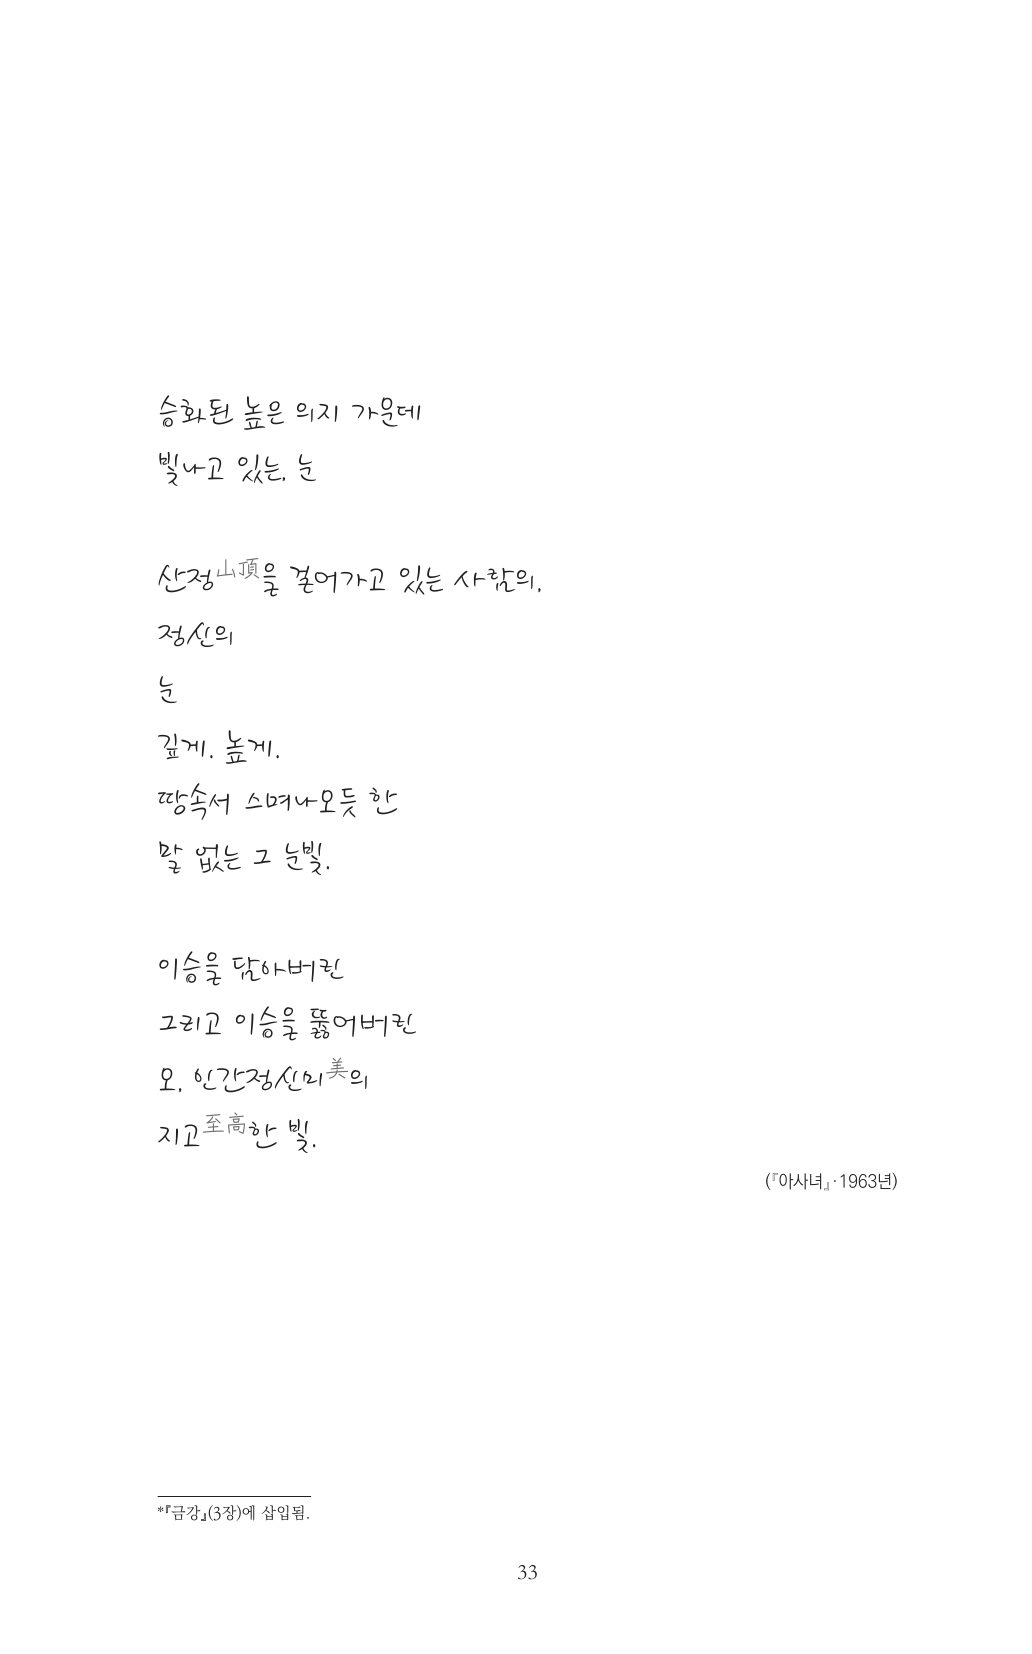 승화된 높은 의지 가운데
빛나고 있는, 눈
산정山頂을 걸어가고 있는 사람의,
정신의
눈
깊게. 높게.
땅속서 스며나오듯 한
말 없는 그 눈빛.
이승을 담아버린
그리고 이승을 뚫어버린
오, 인간정신미美의
지고至高한 빛.
(『아사녀』·1963년)
*『금강』(3장)에 삽입됨.
33